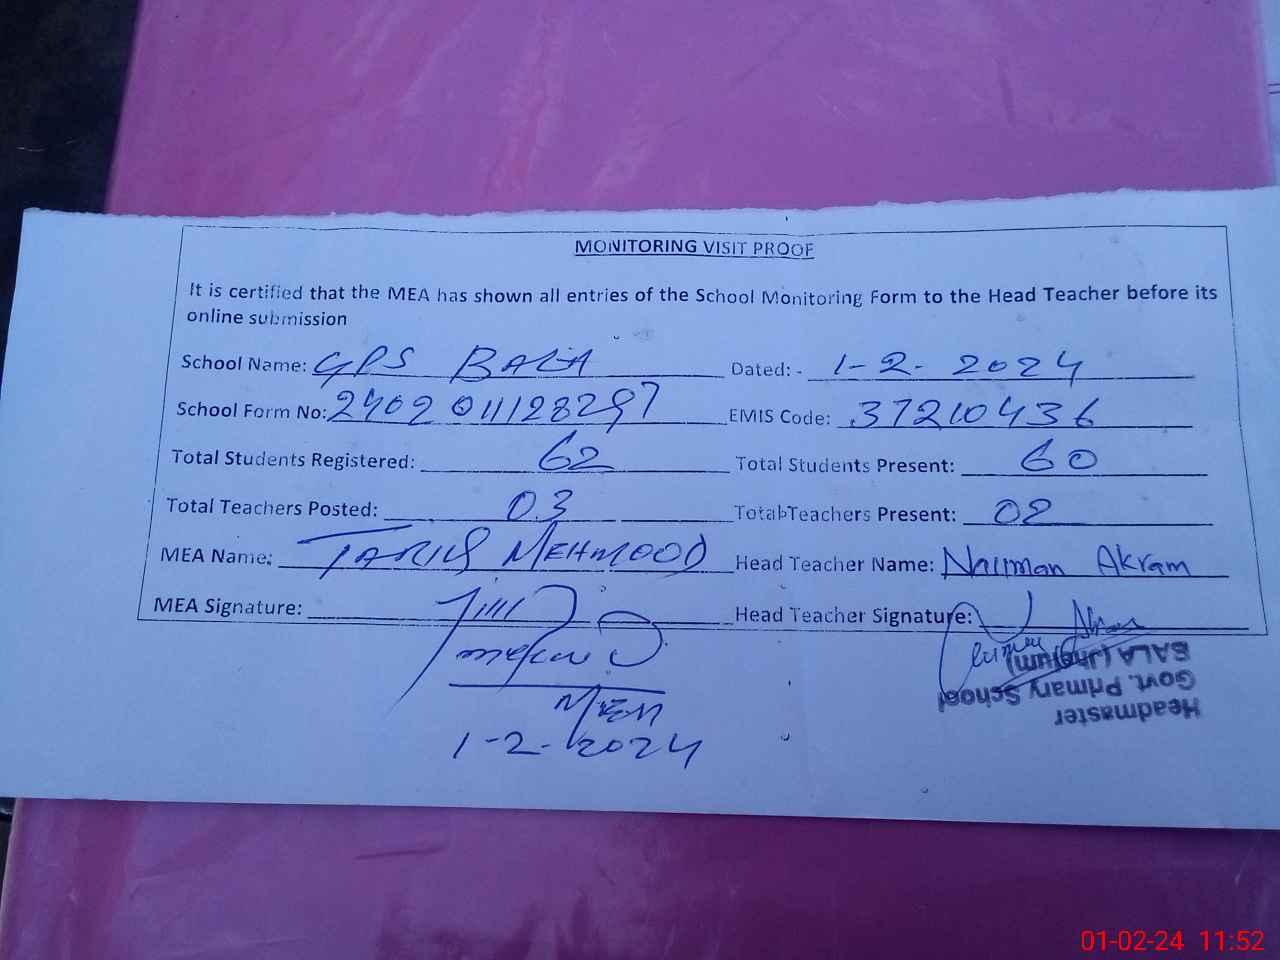 MONITORING VISIT PROOF
It is certified that the MEA has shown all entries of the School Monitoring Form to the Head Teacher before its
online submission
School Name: GPS BALA Dated: - 1-2-2024
School Form No: 2402011128297 EMIS Code: 37210436
Total Students Registered: 62 Total Students Present: 60
Total Teachers Posted: 03 Total Teachers Present: 02
MEA Name: TARIQ MEHMOOD Head Teacher Name: Nauman Akram
MEA Signature: Head Teacher Signature:
MEA
1-2-2024
Headmaster
Govt. Primary School
BALA (Jhelum)
01-02-24 11:52